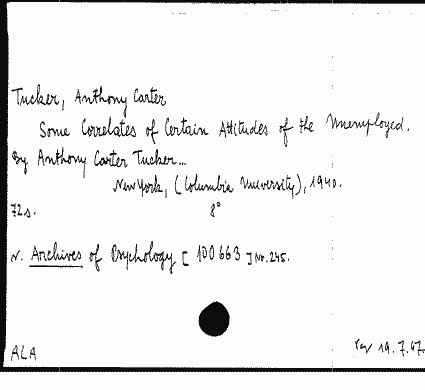 Tucker, Anthony Carter
Some Correlates of Certain Attitudes of the Unemployed.
By Anthony Carter Tucker...
New York, (Columbia University), 1940.
72s. 8°
N. Archives of Psychology [ 100663 ] No. 245.
ALA rev 19.7.47